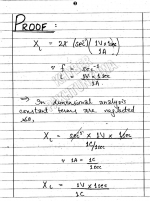 PROOF :
X_L = 2π (sec⁻¹) (1V × 1sec / 1A)
∵ f = sec⁻¹
L = 1V × 1sec / 1A
⇒ In dimensional analysis
constant terms are neglected
so,
X_L = sec⁻¹ × 1V × 1sec / 1C/1sec
∵ 1A = 1C / 1sec
X_L = 1V × 1sec / 1C